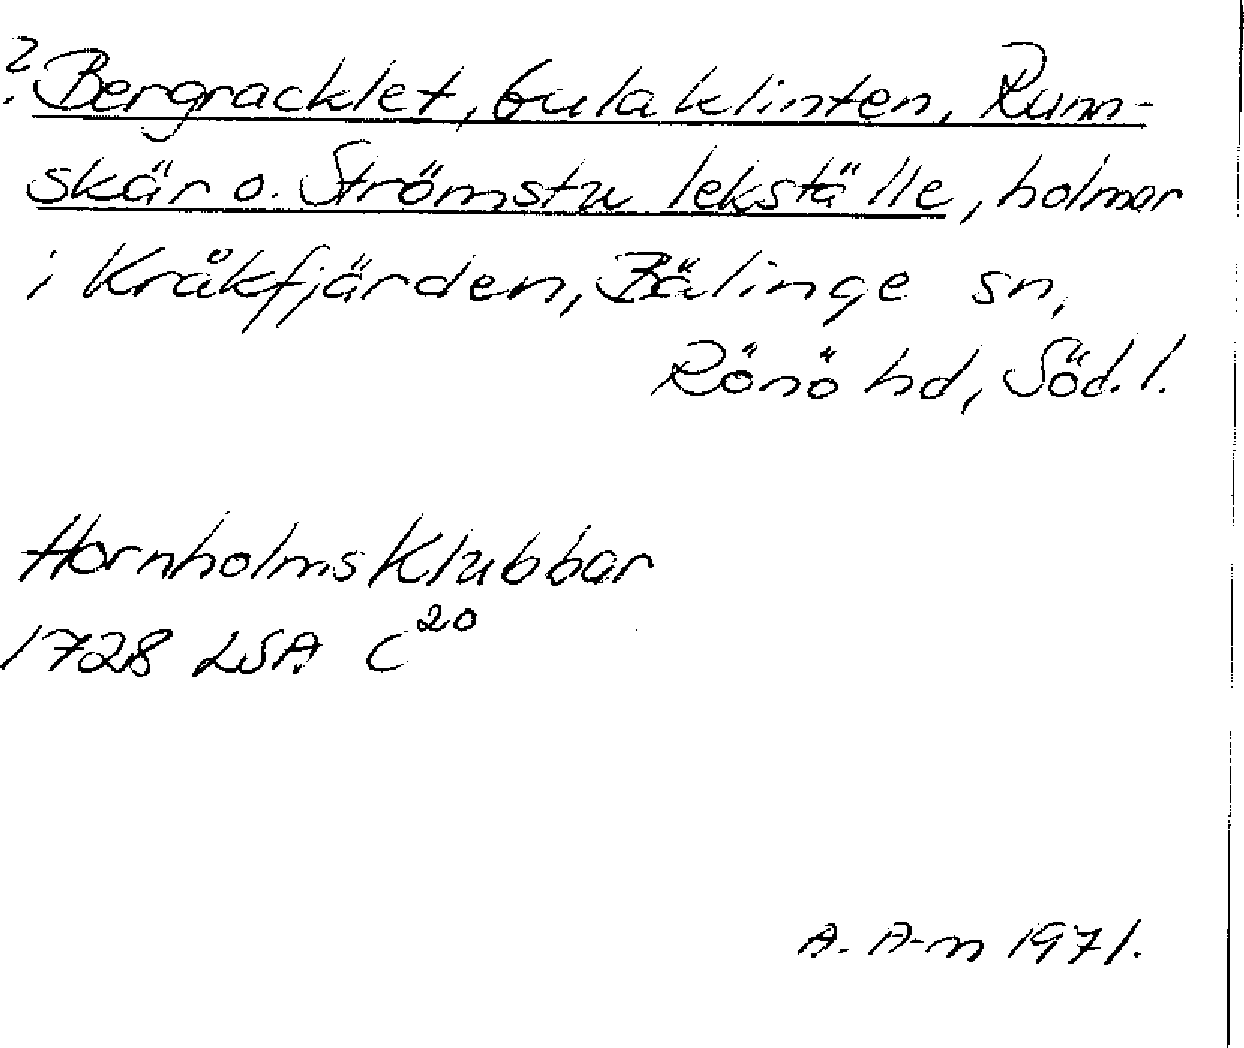 ? Bergracklet, Gulaklinten, Rum-
skär o. Strömstu lekställe, holmar
i Kråkfjärden, Bälinge sn,
Rönö hd, Söd.l.
Hornholms Klubbar
1728 LSA C²⁰
A. A-m 1971.